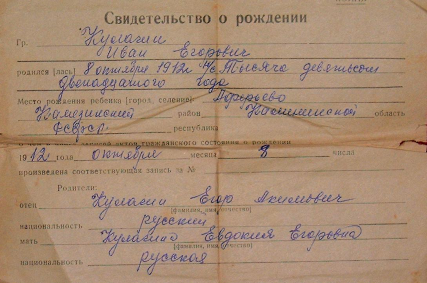 Свидетельство о рождении
Гр. Кулагин
Иван Егорович
родился [лась] 8 октября 1912 Тысяча девятьсот
двенадцатого года
Место рождения ребенка [город, селение]
район области
республика
записей актов гражданского состояния о рождении
1912 года октября месяца 8 числа
произведена соответствующая запись за №
Родители:
отец Кулагин Егор Акимович
(фамилия, имя, отчество)
национальность русский
мать Кулагина Евдокия Егоровна
(фамилия, имя, отчество)
национальность русская